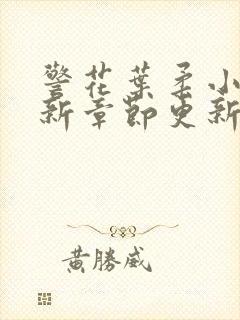 警花葉柔小
新章節更新
黃勝威